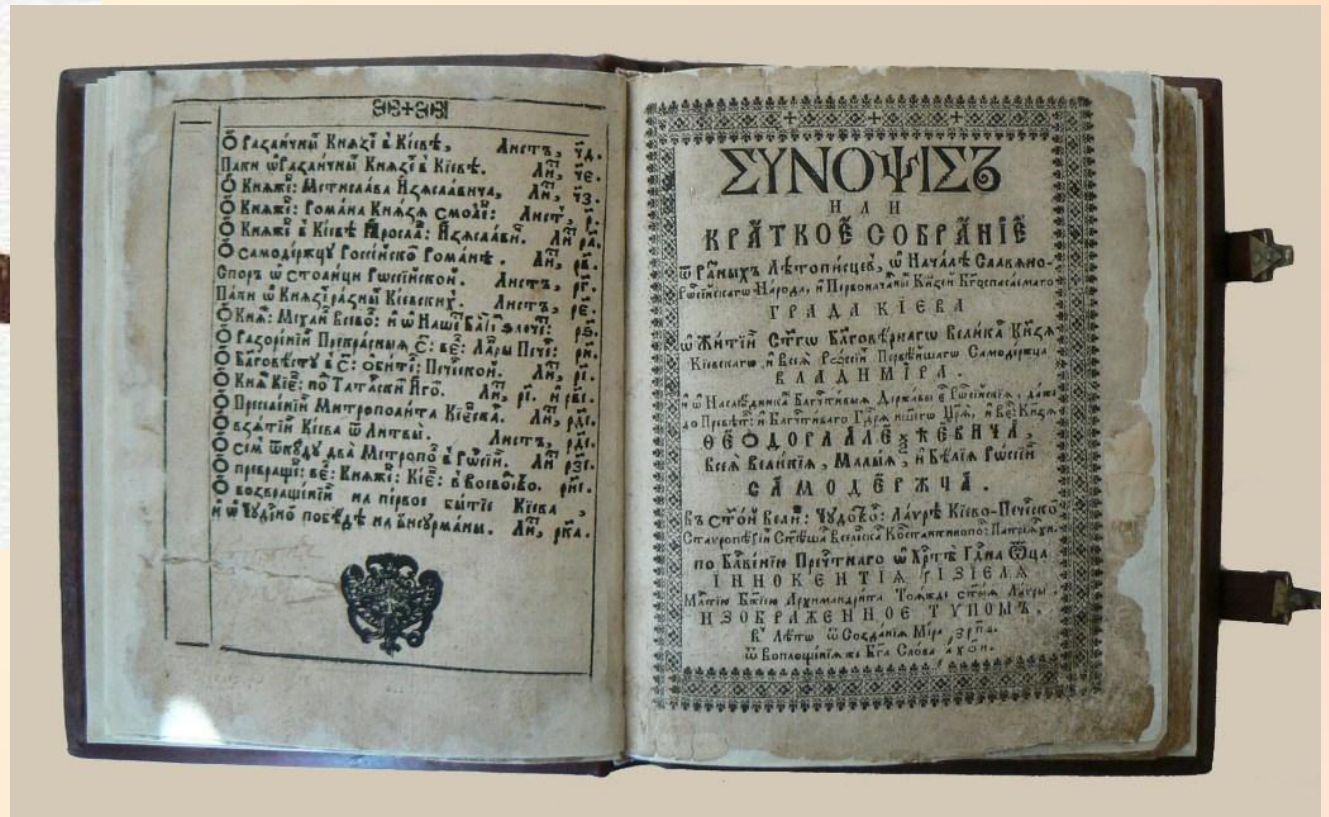 Ѽ Разли́чныⷯ Кнѧзеⷯ в̾ Кі́евѣ, Листъ, ч҃д.
Паки ѡ҆ Разли́чныⷯ Кнѧзеⷯ в̾ Кі́евѣ. Лиⷭ, ч҃е.
Ѽ Кнѧже́: Мстисла́ва Изѧсла́вича, Лиⷭ, ч҃з.
Ѽ Кнѧже́: Рома́на Кнѧ́зѧ Смоле́: Листъ, р҃.
Ѽ Кнѧже́: в̾ Кі́евѣ Ꙗросла́: Изѧсла́виⷱ. Лиⷭ р҃а.
Ѽ Самоде́ржцу Россі́йскоⷨ Рома́нѣ. Лиⷭ, р҃в.
Споръ ѡ҆ столи́цы Рѡссі́йской. Листъ, р҃г.
Па́ки ѡ҆ Кнѧзе́ⷯ ра́зныⷯ Кі́евскихъ. Листъ, р҃е.
Ѽ Кнѧ: Михаи́ Все́во: и҆ ѡ҆ Наше́ Баті́ ѕлоче́: р҃ѕ.
Ѽ Разоре́нїи Прекра́сныѧ С: ве: Ла́ры Пече́: р҃и.
Ѽ Бл҃гове́сту в̾ С: оби́те: Пече́скои. Лиⷭ, р҃і.
Ѽ Кнѧ Кіе: поⷣ Тата́ски И҆гоⷨ. Лиⷭ, р҃і. и҆ р҃ві.
Ѽ Преселе́нїи Митрополи́та Кі́еска. Лиⷭ, р҃ді.
Ѽ взѧ́тїи Кі́ева ѿ Литвы̀. Листъ, р҃ді.
Ѽ сеⷨ ѿкꙋ́дꙋ два̀ Метропо́ в̾ Рѡсі́и. Лиⷭ р҃зі.
Ѽ превраще́: ве: Кнѧже́: Кі́е: в̾ Воево́ⷣство. р҃иі.
Ѽ возвраще́нїи на пе́рвое бытїѐ Кі́ева,
и҆ ѡ҆ чꙋ́дноⷨ побѣ́дѣ на бисꙋрма́ны. Лиⷭ, р҃ка.
ΣΥΝΟΨΙΣЪ
ИЛИ
КРА́ТКОЕ СОБРА́НЇЕ
ѿ Ра́зныхъ Лѣтопи́сцевъ, ѡ҆ Нача́лѣ Славѧ́но-
Рѡссі́йскагѡ Наро́да, и҆ Первонача́лныⷯ Кнѧзе́й Бг҃оспаса́емагѡ
ГРАДА КІЕВА
ѡ҆ Житїи Ст҃гѡ Бл҃говѣ́рнагѡ Вели́кагѡ Кнѧ́зѧ
Кі́евскагѡ и҆ Всеѧ̀ Рѡссі́и Первѣ́йшагѡ Самоде́ржца
ВЛАДИМІ́РА.
и҆ ѡ҆ Наслѣ́дникаⷯ Бл҃гчⷭти́выѧ Держа́вы є҆гѡ̀ Рѡссі́йскїѧ, да́же
до Пресвѣ́т: и҆ Бл҃гчⷭти́ваго Гдⷭрѧ на́шегѡ Цр҃ѧ̀, и҆ Ве: Кнѧ́зѧ
ѲЕ́ОДОРА АЛЕѮЕ́ЕВИЧА,
Всеѧ̀ Вели́кїѧ, Ма́лыѧ, и҆ Бѣ́лыѧ Рѡссі́и
САМОДЕ́РЖЦА.
Въ ст҃о́й Вели́: Чꙋдотво́: Ла́врѣ Кі́ево-Пече́ской
Ставропигі́и Ст҃ѣ́йша Вселе́нска Костантинопо́: Патрїа́рхи.
по Бл҃гослове́нїю Пречⷭтна́гѡ ѡ҆ Хрⷭтѣ̀ Господи́на Ѻтца
ІННОКЕНТІѦ ГІЗІЕЛѦ
Млⷭтїю Бж҃їею Архимандри́та Тоѧ́жде ст҃ы́ѧ Ла́вры.
ИЗОБРАЖЕННОЕ ТУПОМЪ.
В̾ Лѣ́то ѿ Созда́нїѧ Мі́ра ҂зрп҃д.
ѿ Воплоще́нїѧ же Бг҃а Сло́ва ҂ахо҃и.